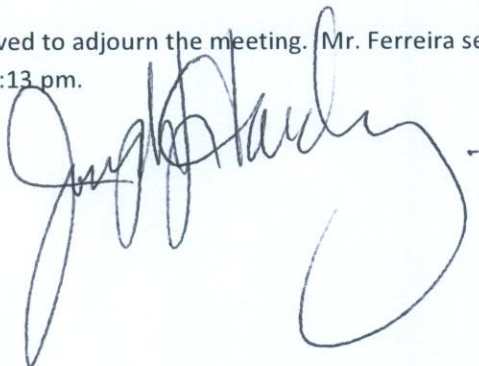 ved to adjourn the meeting. Mr. Ferreira se
:13 pm.